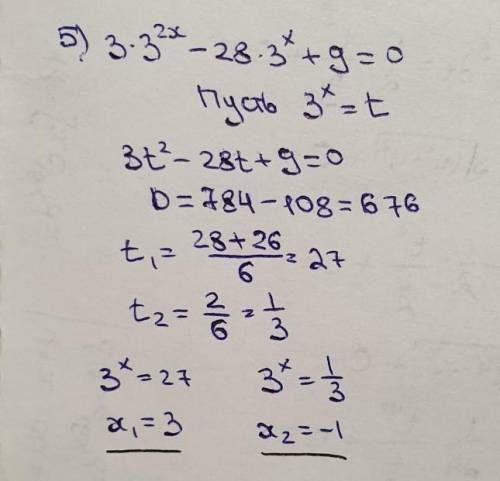 5) 3·3^{2x} − 28·3^x + 9 = 0
Пусть 3^x = t
3t² − 28t + 9 = 0
D = 784 − 108 = 676
t₁ = \frac{28+26}{6} = 27
t₂ = \frac{2}{6} = \frac{1}{3}
3^x = 27   3^x = \frac{1}{3}
x₁ = 3   x₂ = −1